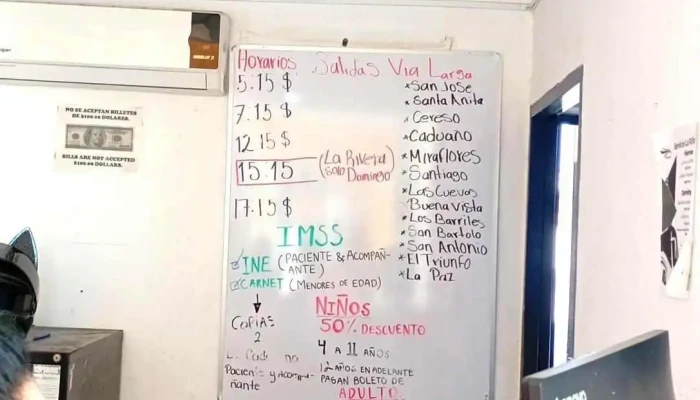 NO SE ACEPTAN BILLETES
DE $100.00 DOLARES.
BILLS ARE NOT ACCEPTED
$100.00 DOLLARS.
Horarios Salidas Via Larga
5:15 $
7.15 $
12.15 $
15.15 (La Rivera solo Domingo)
17.15 $
* San Jose
* Santa Anita
* Cereso
* Caduaño
* Miraflores
* Santiago
* Las Cuevas
Buena Vista
* Los Barriles
* San Bartolo
* San Antonio
* El Triunfo
* La Paz
IMSS
INE (PACIENTE & ACOMPAÑ-
ANTE)
CARNET (MENORES DE EDAD)
COPIAS
2
Paciente y Acompa-
ñante
NIÑOS
50% DESCUENTO
4 A 11 AÑOS
12 AÑOS EN ADELANTE
PAGAN BOLETO DE
ADULTO
Lenovo